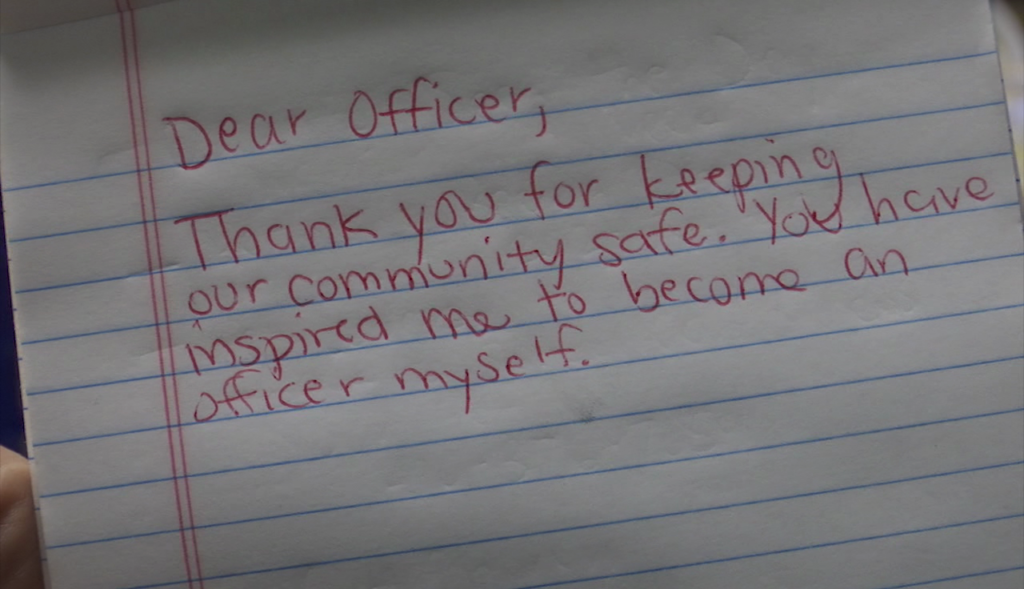 Dear Officer,
Thank you for keeping
our community safe. You have
inspired me to become an
officer myself.